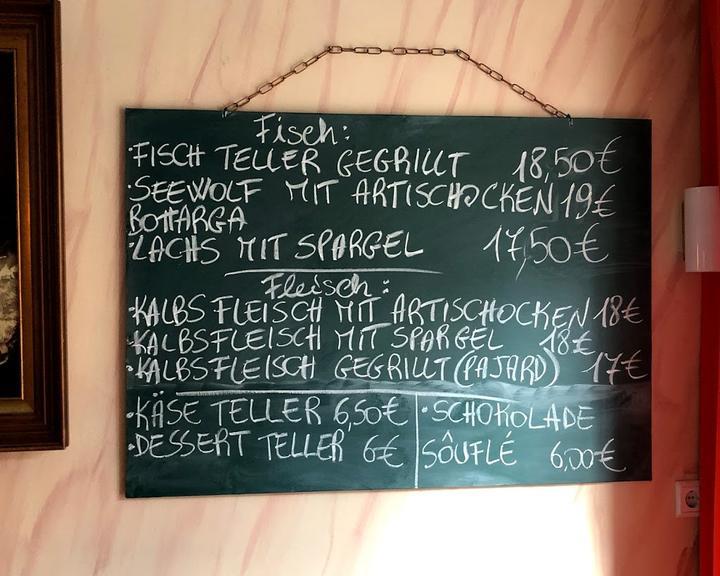 Fisch:
·FISCH TELLER GEGRILLT 18,50€
·SEEWOLF MIT ARTISCHOCKEN 19€
BOTTARGA
·LACHS MIT SPARGEL 17,50€
Fleisch:
·KALBSFLEISCH MIT ARTISCHOCKEN 18€
·KALBSFLEISCH MIT SPARGEL 18€
·KALBSFLEISCH GEGRILLT (PAJARD) 17€
·KÄSE TELLER 6,50€
·DESSERT TELLER 6€
·SCHOKOLADE
SÔUFLÉ 6,00€